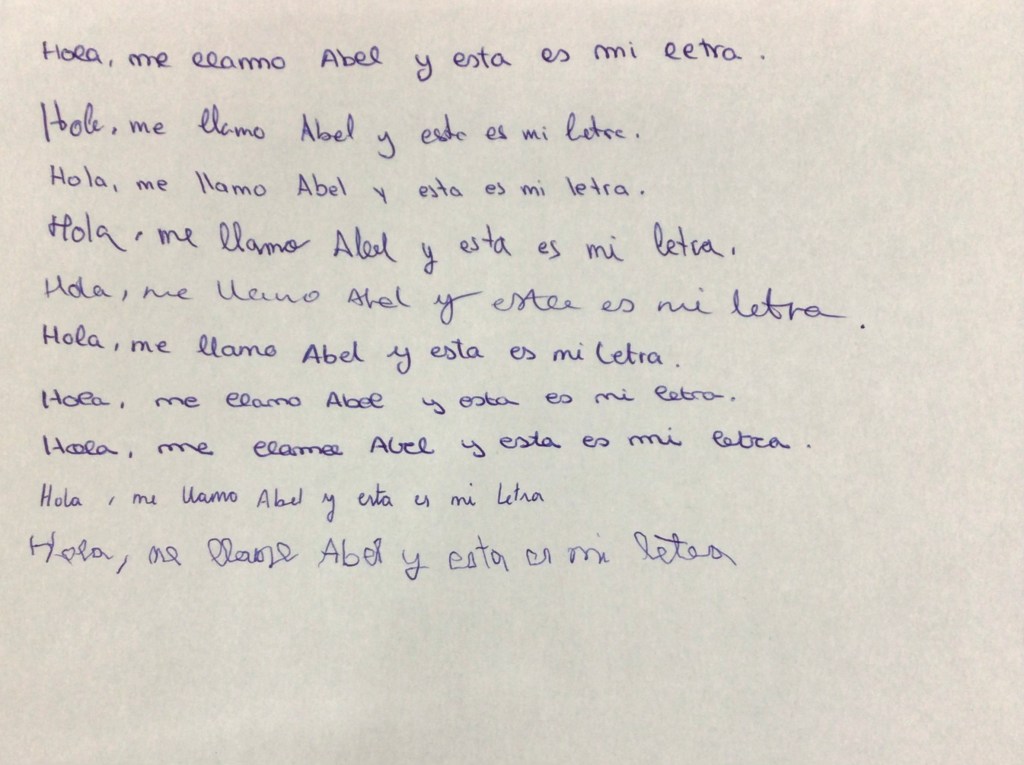 Hola, me llamo Abel y esta es mi letra.
Hola, me llamo Abel y esta es mi letra.
Hola, me llamo Abel y esta es mi letra.
Hola, me llamo Abel y esta es mi letra.
Hola, me llamo Abel y esta es mi letra.
Hola, me llamo Abel y esta es mi letra.
Hola, me llamo Abel y esta es mi letra.
Hola, me llamo Abel y esta es mi letra.
Hola, me llamo Abel y esta es mi letra
Hola, me llamo Abel y esta es mi letra